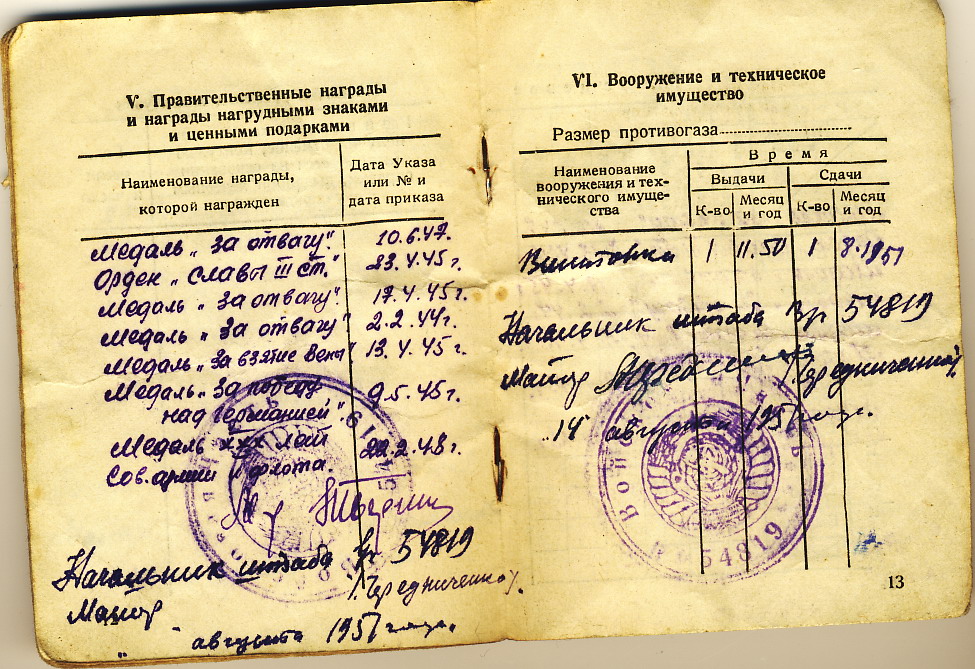 V. Правительственные награды
и награды нагрудными знаками
и ценными подарками
Наименование награды,
которой награжден
Дата Указа
или № и
дата приказа
Медаль „За отвагу". 10.6.47.
Орден „Славы III ст." 23.4.45г.
Медаль „За отвагу". 17.4.45г.
Медаль „За отвагу" 2.2.44г.
Медаль „За взятие Вены" 13.4.45г.
Медаль „За победу
над Германией". 9.5.45г.
Медаль XXX лет
Сов. армии и флота. 22.2.48г.
Начальник штаба Вч 54819
Майор /Чередниченко/.
„ августа 1951 года.
VI. Вооружение и техническое
имущество
Размер противогаза
Наименование
вооружения и тех-
нического имуще-
ства
Время
Выдачи
Сдачи
К-во
Месяц
и год
К-во
Месяц
и год
Винтовка 1 11.50 1 8.1951
Начальник штаба Вч 54819
Майор /Чередниченко/
„14" августа 1951 года.
54819
13